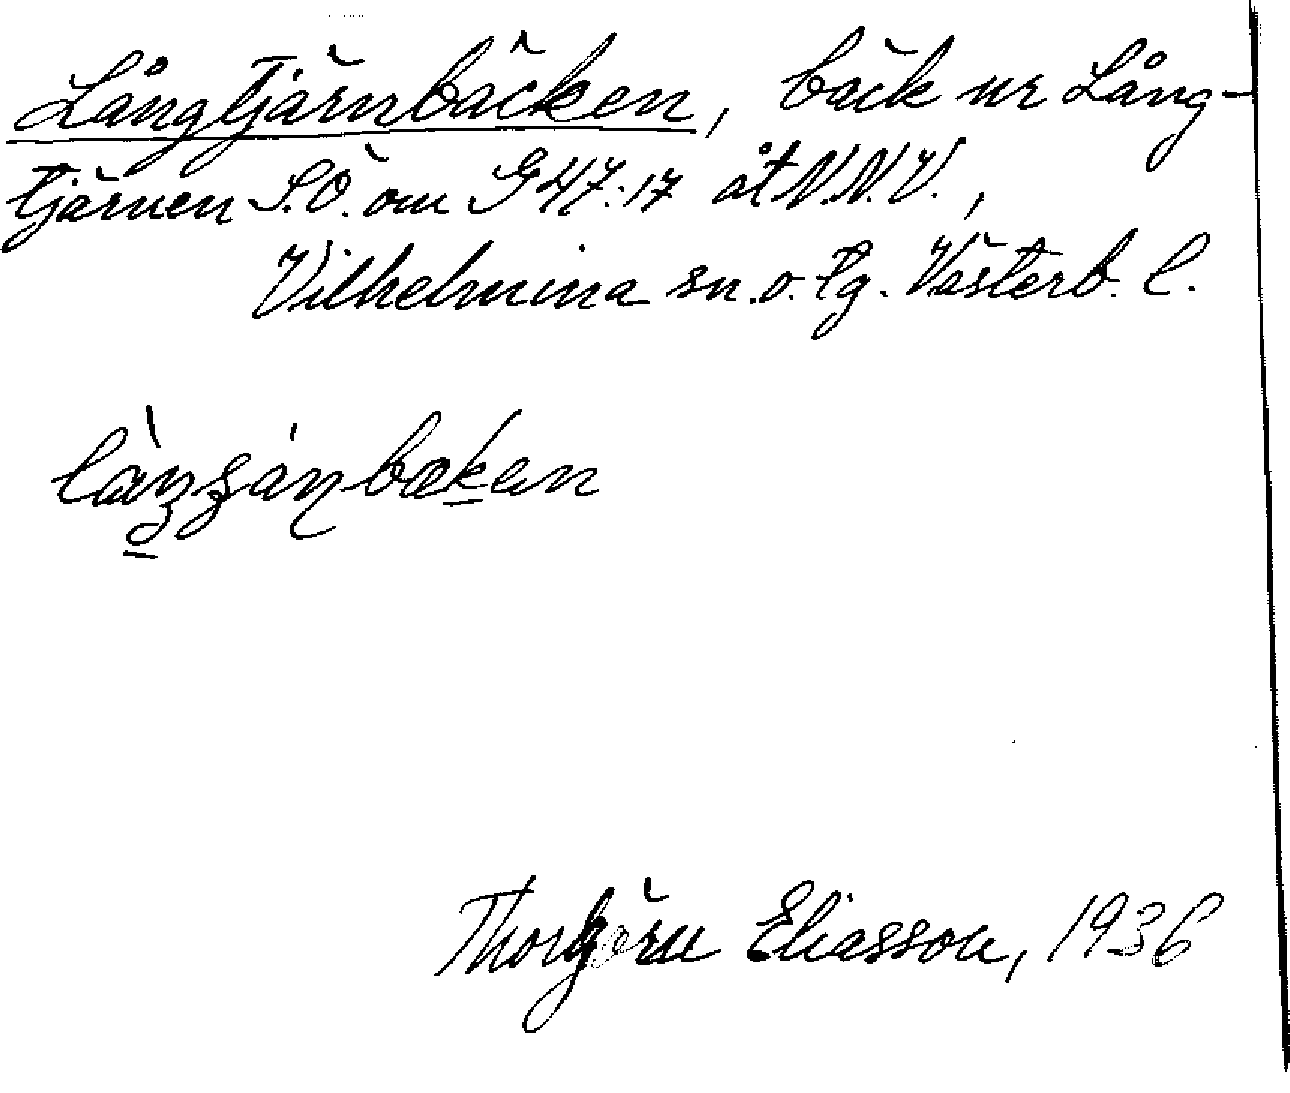 Långtjärnbäcken, bäck ur Lång-
tjärnen S.Ö. om G47:17 åt N.N.V.,
Vilhelmina sn. o. tg. Västerb. l.
Thorbjörn Eliasson, 1936